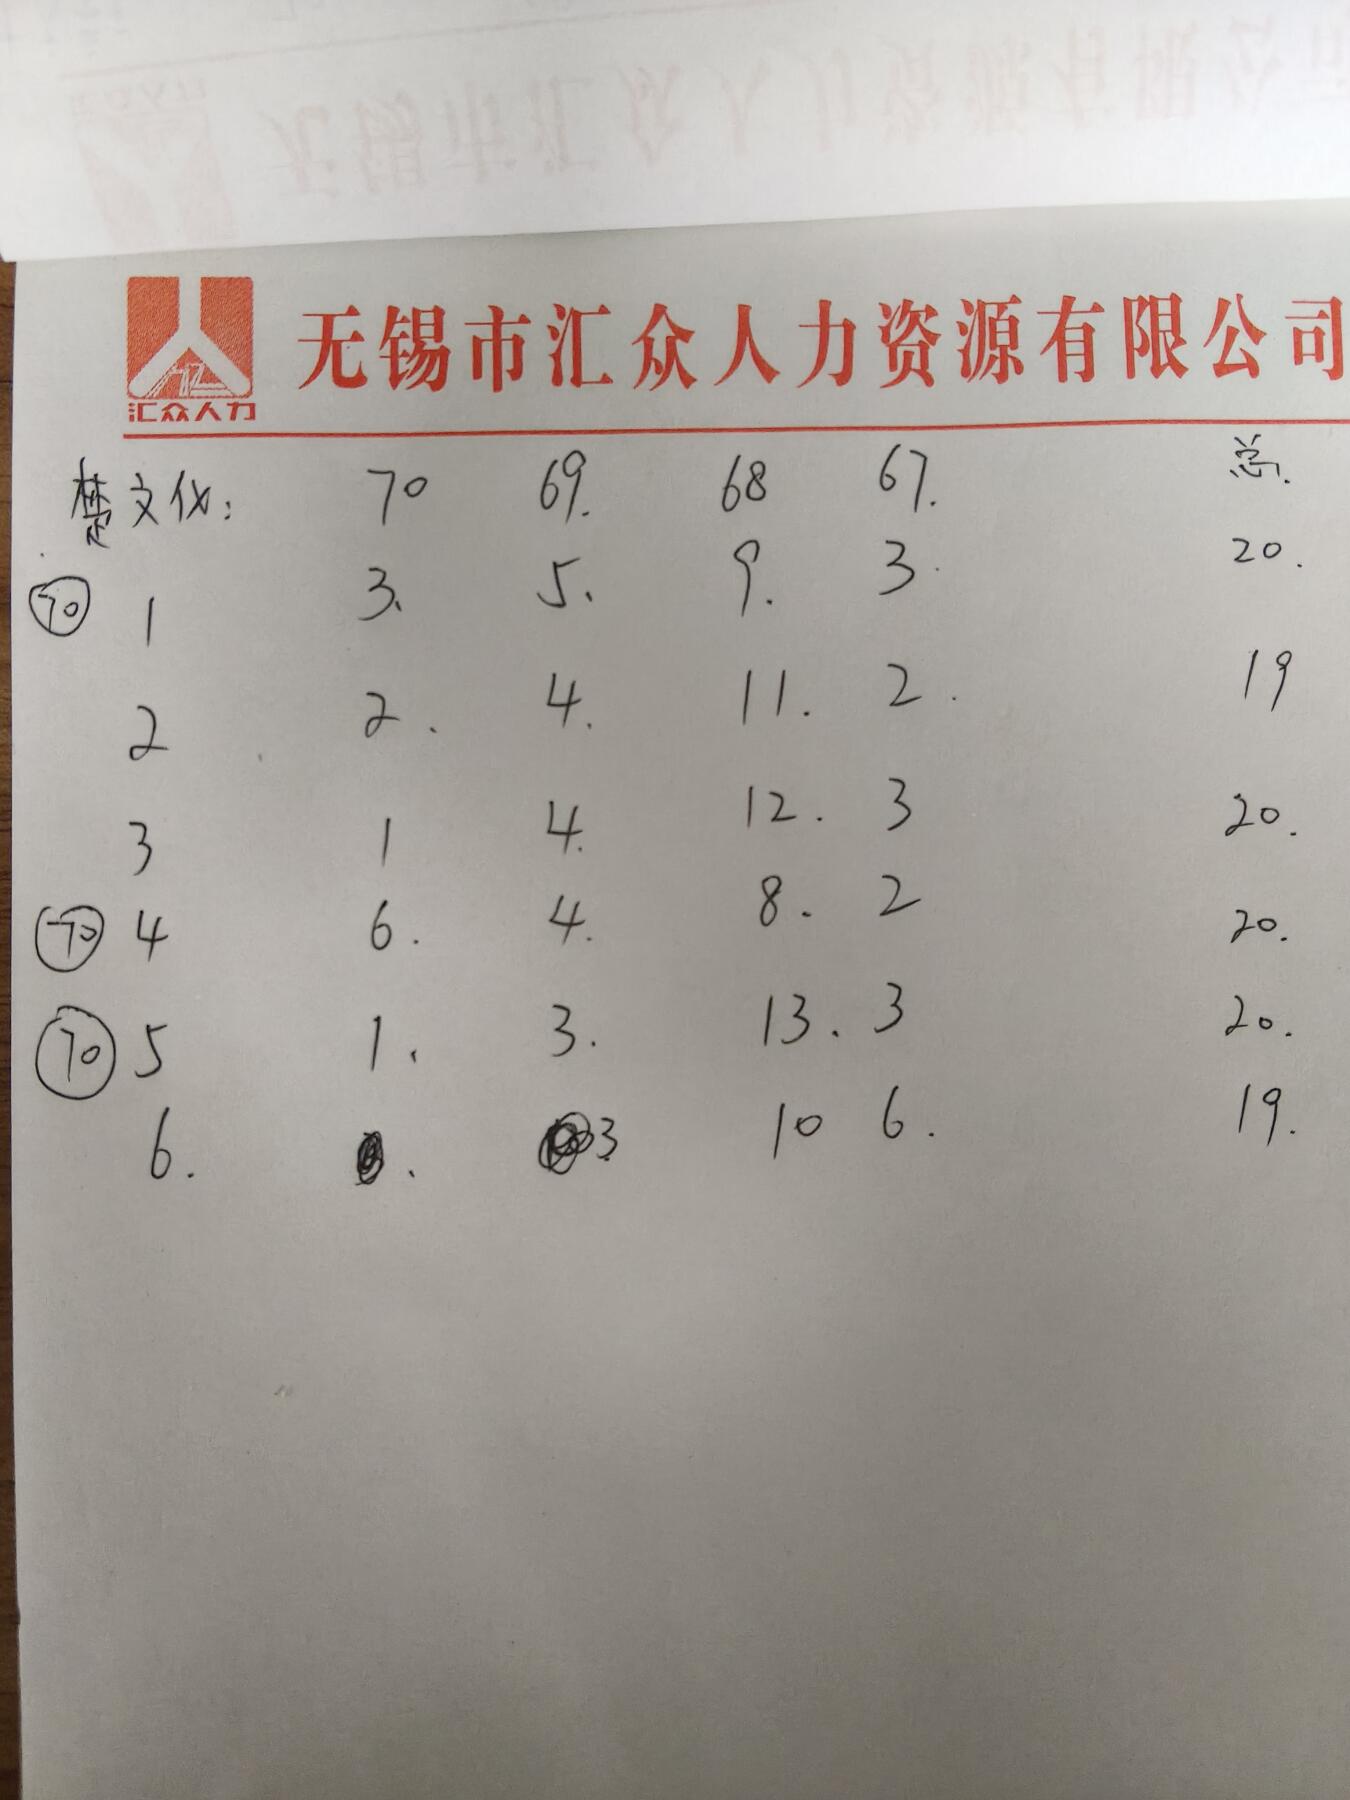 无锡市汇众人力资源有限公司
汇众人力
楚文仪: 70 69. 68 67. 总.
70 1 3. 5. 9. 3. 20.
2 2. 4. 11. 2. 19
3 1 4. 12. 3 20.
70 4 6. 4. 8. 2 20.
70 5 1. 3. 13. 3 20.
6. . 3 10 6. 19.